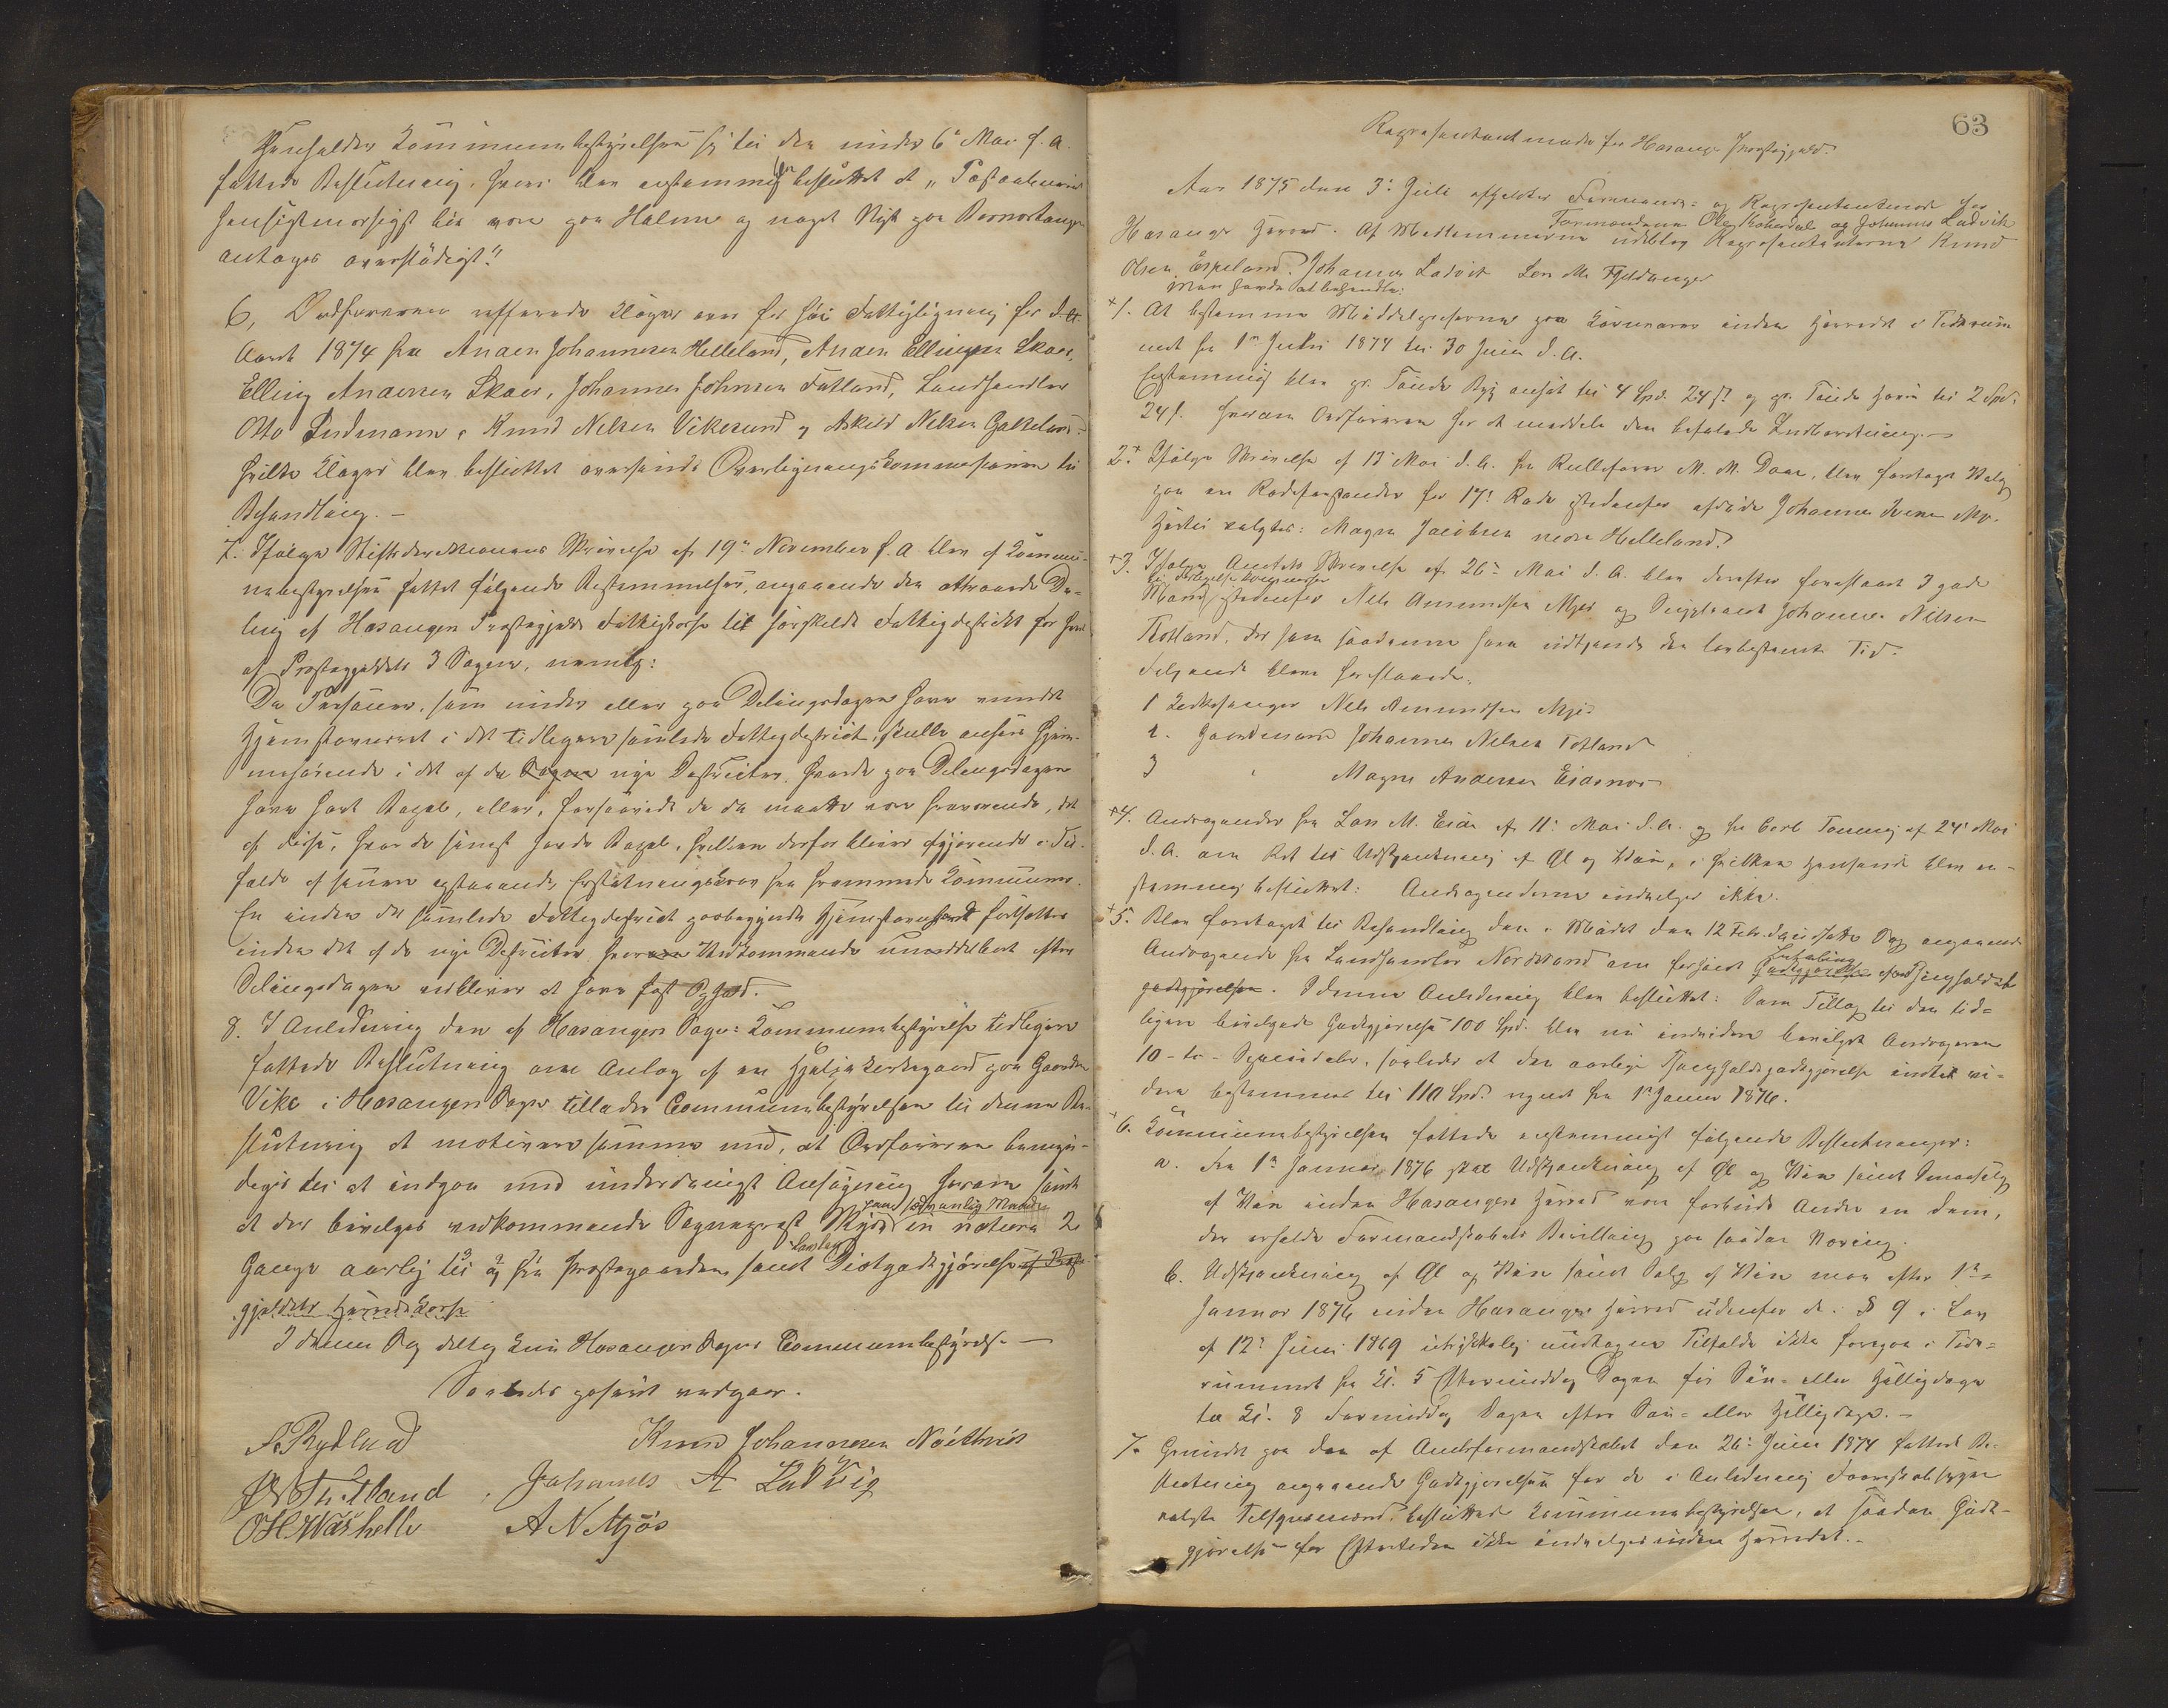 Henholder Kommunebestyrelsen sig til den under 6te Mai f. A.
fattede Beslutning, hvori blev enstemmig beslüttet at "Postaabneriet
hensigtmæssigst bør være paa Holme og noget Nyt paa Bernestangen
antages overflödigt."
6, Ordföreren refererede Klager over for höi Fattigligning for
Aaret 1874 fra Anders Johannesen Helleland, Anders Ellingsen Skaar,
Elling Andersen Skaar, Johannes Johnsen Fatland, Landhandler
Otto Lindmann, Knud Nelsen Vikesund og Askild Nelsen
hvilke Klager blev besluttet oversendt Overligningskommissionen til
Behandling. –
7. Ifölge Stiftsdirektionens Skrivelse af 19de November f. A. blev af Kommü-
nebestyrelsen fattet fölgende Bestemmelser, angaaende den attraaede De-
ling af Hosanger Præstegjelds Fattigkasse til särskildt Fattigdistrikt for hver
af Præstegjeldets 3 Sogne, nemlig:
De Personer, som under eller paa Delingsdagen have vundet
Hjemstavnsret i det tidligere samlede Fattigdistrict, skulle ansees hjem-
mehörende i det af de Sogne nye Distrikter, hvor de paa Delingsdagen
have havt Bopæl, eller, forsaavidt de da maatte være fraværende, det
af disse, hvor de sidst havde Bopæl, hvilken derfor bliver afgjörende i Til-
fælde af senere opstaaende Erstatningskrav fra fremmede Kommuner.
En inden det samlede Fattigdistrict paabegyndt Hjemstavnsret fortsættes
inden det af de nye Distrikter hvor Vedkommende umiddelbart efter
Delingsdagen vedbliver at have fast Ophold.
8. I Anledning den af Hosangers Sogns Kommunebestyrelse tidligere
fattede Beslutning om Anlæg af en Hjelpekirkegaard paa Gaarden
Vike i Hosangers Sogn tillader Communebestyrelsen til denne Be-
slutning at motivere samme med, at Ordföreren bemyn-
diges til at indgaa med underdanigst Ansögning herom samt
at der bevilges vedkommende Sogneprest Skyds in natura 2
paa sædvanlig Maade
Gange aarlig til og fra Præstegaarden samt Diætgodtgjörelse af Præste-
gjeldets Herredskasse
I denne Sag deltog kun Hosanger Sogns Communebestyrelse –
Saaledes passeret vedgaar.
Knud Johannesen Nöttveit
Johanes A Ladvig
O H Mäshelle A N Mjös
63
Representantmöde for Hosanger Præstegjeld.
Aar 1875 den 3die Juli afholdtes Formands- og Representantmöde for
Hosanger Herred. Af Medlemmerne udeblev Representanterne Knud
Formændene Ole og Johannes Ladvik
Olsen Espeland, Johannes Ladvik Lars Ms Fjeldanger
Man havde at behandle:
1. At bestemme Middelpriserne paa Kornvarer inden Herredet i Tidsrum-
met fra 1ste Juli 1874 til 30 Juni d. A.
Enstemmig blev pr. Tönde Byg ansat til 4 Spd. 24 s og pr. Tönde Havre til 2 Spd.
24 s. hvorom Ordföreren har at meddele den befalede Indberetning. –
2. Ifölge Skrivelse af 13 Mai d. A. fra Rulleförer M. M. Daae, blev foretaget Valg
paa en Rodeforstander for 17de Rode istedenfor afdöde Johannes Iversen
Hertil valgtes: Magne Jacobsen nedre Helleland.
3. Ifölge Amtets Skrivelse af 26de Mai d. A. blev derefter foreslaaet 3 gode
Mænd istedenfor Nels Amundsen Mjös og Johannes Nilsen
Totland, der som saadanne have udtjent den lovbestemte Tid.
Fölgende bleve foreslaaede,
1 Kirkesanger Nels Amundsen Mjös
2. Gaardmand Johannes Nilsen Totland
3 " Mogns Andersen Eidsnes
4. Andragender fra Lars M. Eide af 11te Mai d. A. og fra Carl Tonning af 24de Mai
d. A. om Ret til Udskjenkning af Öl og Vin, i hvilken Henseende blev en-
stemmig besluttet: Andragenderne indvilges ikke.
5. Blev foretaget til Behandling den i Mödet den 12 Feb. d. A. udsatte Sag angaaende
Andragende fra Landhandler Nordstrand om forhöiet Godtgjörelse af Thinghold
godtgjörelsen. I denne Anledning blev besluttet: Som Tillæg til den tid-
ligere bevilgede Godtgjörelse 100 Spd. blev nu endvidere bevilget Andrageren
10 – ti – Speciedaler, saaledes at den aarlige Thingholdsgodtgjörelse indtil vi-
dere bestemmes til 110 Spd. regnet fra 1ste Januar 1876.
6. Kommunebestyrelsen fattede enstemmigt fölgende Beslutninger:
a. Fra 1ste Januar 1876 skal Udskjenkning af Öl og Vin samt Smaasalg
af Vin inden Hosangers Herred være forbudt Andre end dem,
der erholde Formandskabets Bevilling paa saadan Næring.
b. Udskjenkning af Öl og Vin samt Salg af Vin maa efter 1ste
Januar 1876 inden Hosangers Herred udenfor de i § 9 i Lov
af 12te Juni 1869 udtrykkelig undtagne Tilfælde ikke foregaa i Tids-
rummet fra Kl. 5 Eftermiddag Dagen för Sön- eller Helligdage
til Kl. 8 Formiddag Dagen efter Sön- eller Helligdage. –
7. Grundet paa den af Amtsformandskabet den 26de Juni 1874 fattede Be-
slutning angaaende Godtgjörelsen for de i Anledning
valgte Tilsynsmænd, besluttede Kommunebestyrelsen, at saadan Godt-
gjörelse for Eftertiden ikke indvilges inden Herredet. –